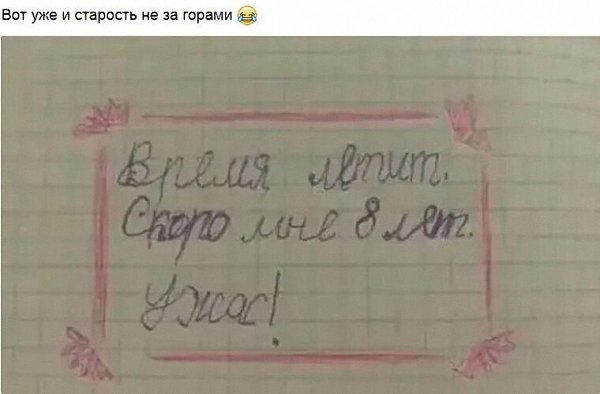 Вот уже и старость не за горами 😂
Время летит.
Скоро мне 8 лет.
Ужас!